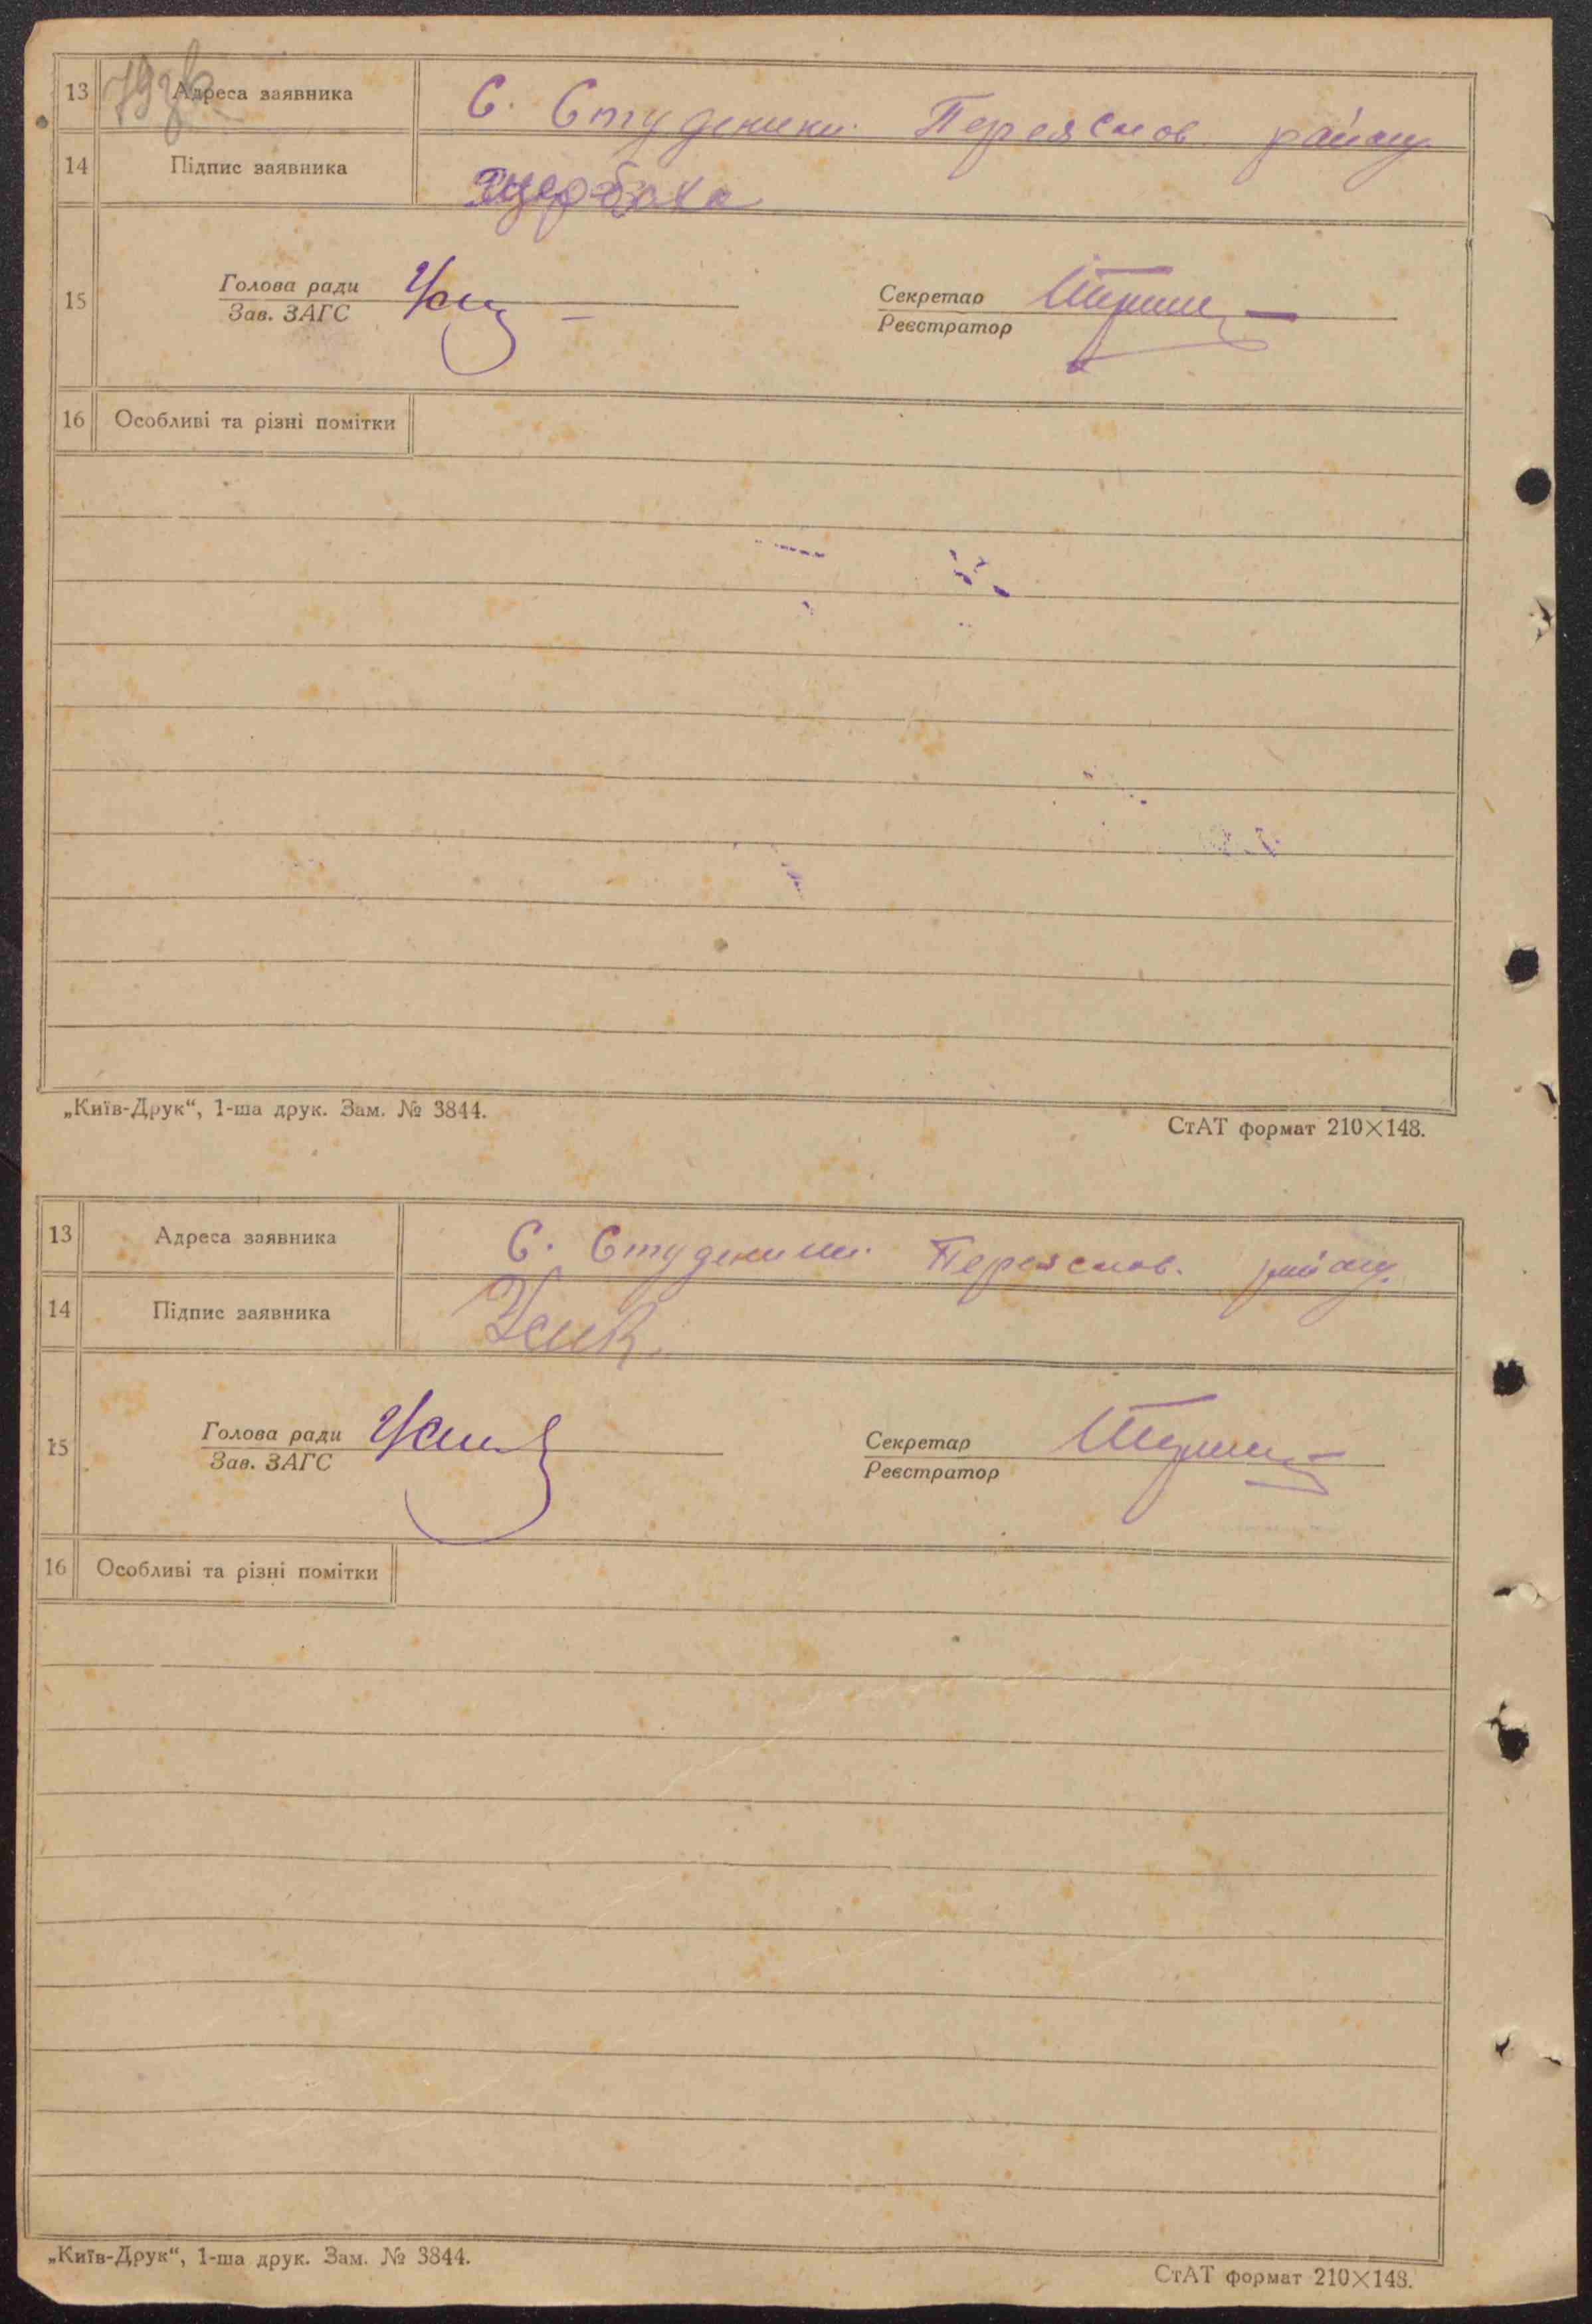 13 Адреса заявника С. Студеники Переяслов району
14 Підпис заявника Щербака
15 Голова ради Секретар
Зав. ЗАГС Реєстратор
16 Особливі та різні помітки
„Київ-Друк“, 1-ша друк. Зам. № 3844. СтАТ формат 210×148.
13 Адреса заявника С. Студеники Переяслов. району.
14 Підпис заявника Усик
15 Голова ради Секретар
Зав. ЗАГС Реєстратор
16 Особливі та різні помітки
„Київ-Друк“, 1-ша друк. Зам. № 3844. СтАТ формат 210×148.